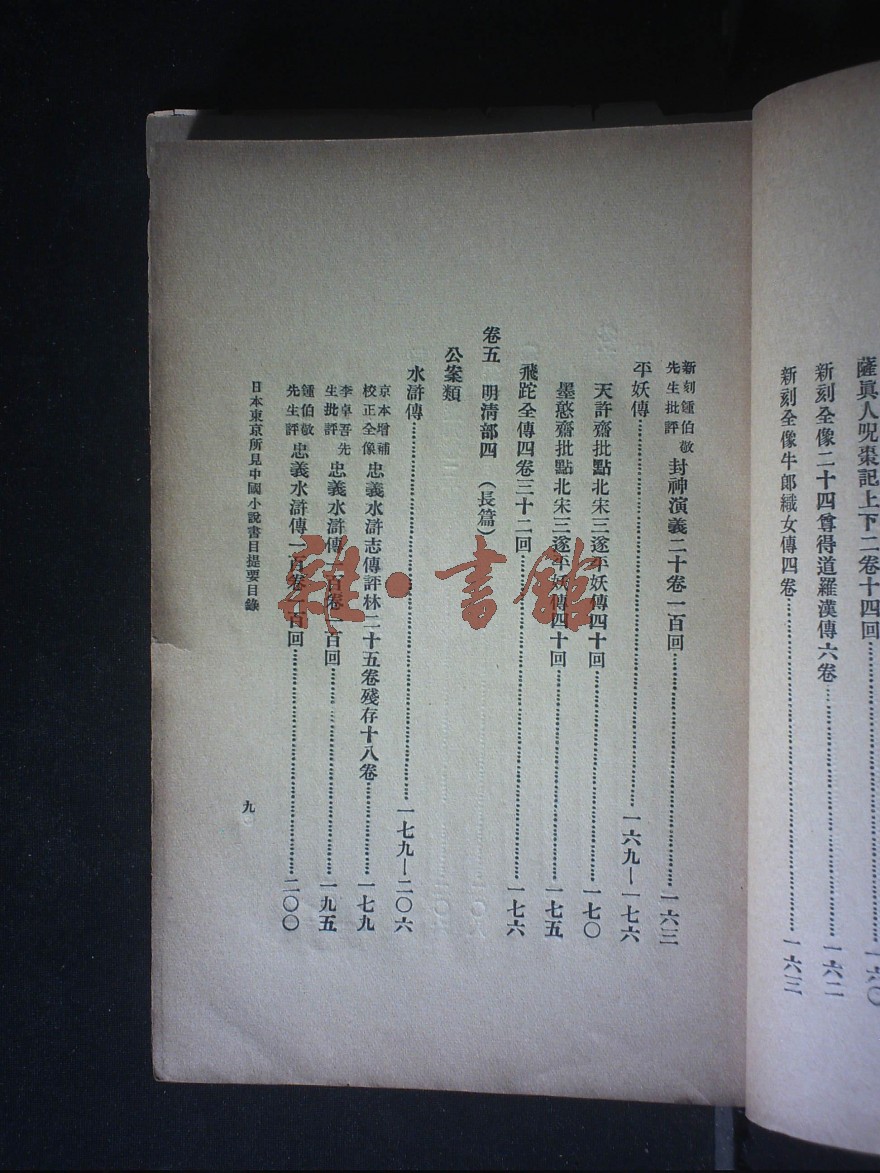 薩眞人呪棗記上下二卷十四回……一六〇
新刻全像二十四尊得道羅漢傳六卷……一六二
新刻全像牛郎織女傳四卷……一六三
新刻鍾伯敬先生批評封神演義二十卷一百回……一六三
平妖傳……一六九—一七六
天許齋批點北宋三遂平妖傳四十回……一七〇
墨憨齋批點北宋三遂平妖傳四十回……一七五
飛跎全傳四卷三十二回……一七六
卷五 明清部四（長篇）
公案類
水滸傳……一七九—二〇六
京本增補校正全像忠義水滸志傳評林二十五卷殘存十八卷……一七九
李卓吾先生批評忠義水滸傳一百卷一百回……一九五
鍾伯敬先生評忠義水滸傳一百卷一百回……二〇〇
日本東京所見中國小說書目提要目錄
九
雜·書館